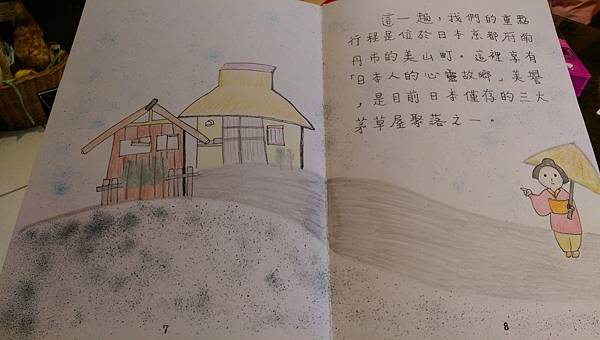 這一趟，我們的重點
行程是位於日本京都府南
丹市的美山町。這裡享有
「日本人的心靈故鄉」美譽
，是目前日本僅存的三大
茅草屋聚落之一。
7
8